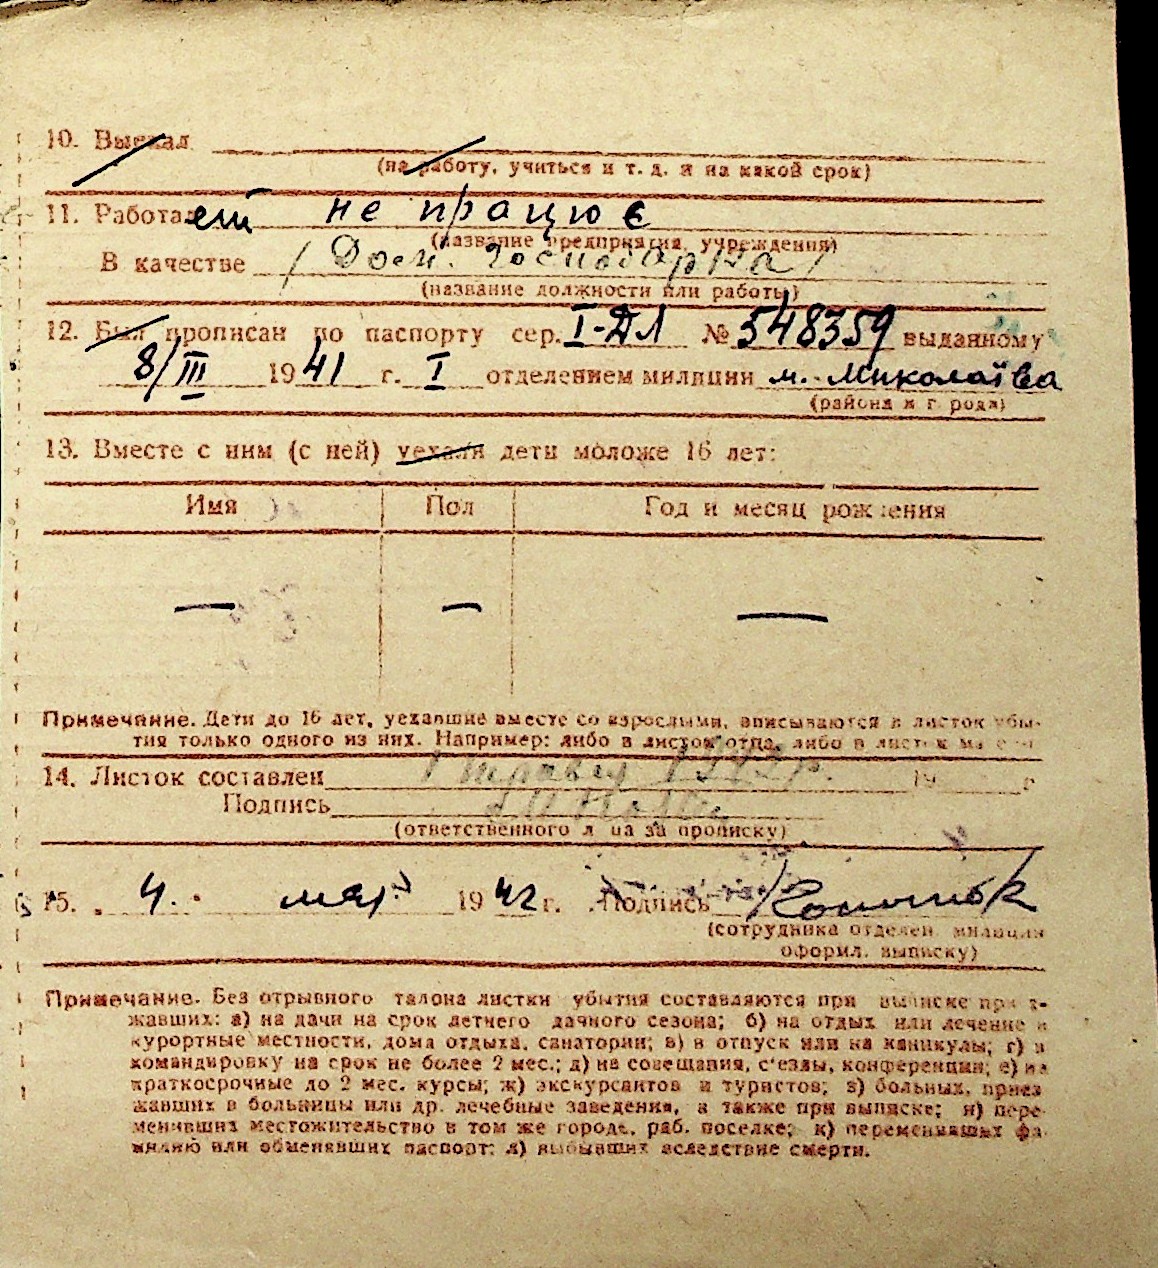 10. Выехал
(на работу, учиться и т. д. и на какой срок)
11. Работаеш не працює
(название предприятия, учреждения)
В качестве / Дом. господарка /
(название должности или работы)
12. Был прописан по паспорту сер. I-ДЛ № 548359 выданному
8/III 1941 г. I отделением милиции м. Миколаїва
(района и города)
13. Вместе с ним (с ней) уехали дети моложе 16 лет:
Имя Пол Год и месяц рождения
— — —
Примечание. Дети до 16 лет, уехавшие вместе со взрослыми, вписываются в листок убы-
тия только одного из них. Например: либо в листок отца, либо в листок
14. Листок составлен 1 травня 1942 р. 19 г.
Подпись
(ответственного лица за прописку)
15. 4. мая 1942 г. Подпись
(сотрудника отделен. милиции
оформил. выписку)
Примечание. Без отрывного талона листки убытия составляются при выписке приез-
жавших: а) на дачи на срок летнего дачного сезона; б) на отдых или лечение в
курортные местности, дома отдыха, санатории; в) в отпуск или на каникулы; г) в
командировку на срок не более 2 мес.; д) на совещания, с'езды, конференции; е) на
краткосрочные до 2 мес. курсы; ж) экскурсантов и туристов; з) больных, приез
жавших в больницы или др. лечебные заведения, а также при выписке; и) пере-
менивших местожительство в том же городе, раб. поселке; к) переменивших фа-
милию или обменявших паспорт; л) выбывших вследствие смерти.